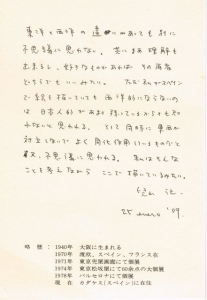 東洋と西洋の違いにあっても別に
不思議に思わない。共にまあ理解も
出来るし、好きなものがあれば その両者
どちらでもいゝみたい。ただ私がスペイン
で絵を描いていても西洋的にならないのは
日本人的があり 持っているからかも
知れないと思われる。として同時に東西が
対立しないで よく同化作用
又、不思議に思われる。私はそんな
ことを考えながら こゝで描いているみたい。
25 marzo '79.
略 歴：1940年 大阪に生まれる
1970年 渡欧、スペイン、フランス在
1971年 東京兜屋画廊にて個展
1974年 東京松坂屋にて60余点の大個展
1978年 バルセロナにて個展
現 在 カダケス(スペイン)に在住